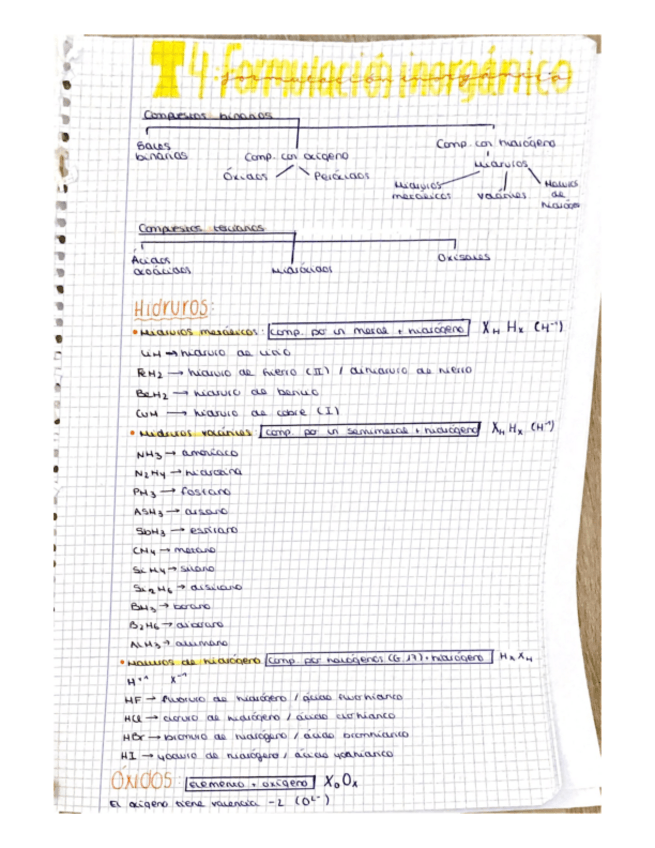 T4: Formulación inorgánica
formulación inorgánica
Compuestos binarios
Sales binarias
Comp. con oxígeno
Comp. con hidrógeno
Óxidos
Peróxidos
Hidruros
Hidruros metálicos
volátiles
Haluros de hidrógeno
Compuestos terciarios
Ácidos oxoácidos
Hidróxidos
Oxisales
HIDRUROS:
• Hidruros metálicos: comp. por un metal + hidrógeno XH Hx (H⁻¹)
LiH → hidruro de litio
FeH2 → hidruro de hierro (II) / dihidruro de hierro
BeH2 → hidruro de berilio
CuH → hidruro de cobre (I)
• Hidruros volátiles: comp. por un semimetal + hidrógeno XH Hx (H⁻¹)
NH3 → amoníaco
N2H4 → hidracina
PH3 → fosfano
ASH3 → arsano
SbH3 → estibano
CH4 → metano
SiH4 → silano
Si2H6 → disilano
BH3 → borano
B2H6 → diborano
ALH3 → alumano
• Haluros de hidrógeno comp. por halógenos (G.17) + hidrógeno Hx XH
H⁺¹ X⁻¹
HF → fluoruro de hidrógeno / ácido fluorhídrico
HCl → cloruro de hidrógeno / ácido clorhídrico
HBr → bromuro de hidrógeno / ácido bromhídrico
HI → yoduro de hidrógeno / ácido yodhídrico
ÓXIDOS: elemento + oxígeno XO Ox
El oxígeno tiene valencia -2 (O²⁻)